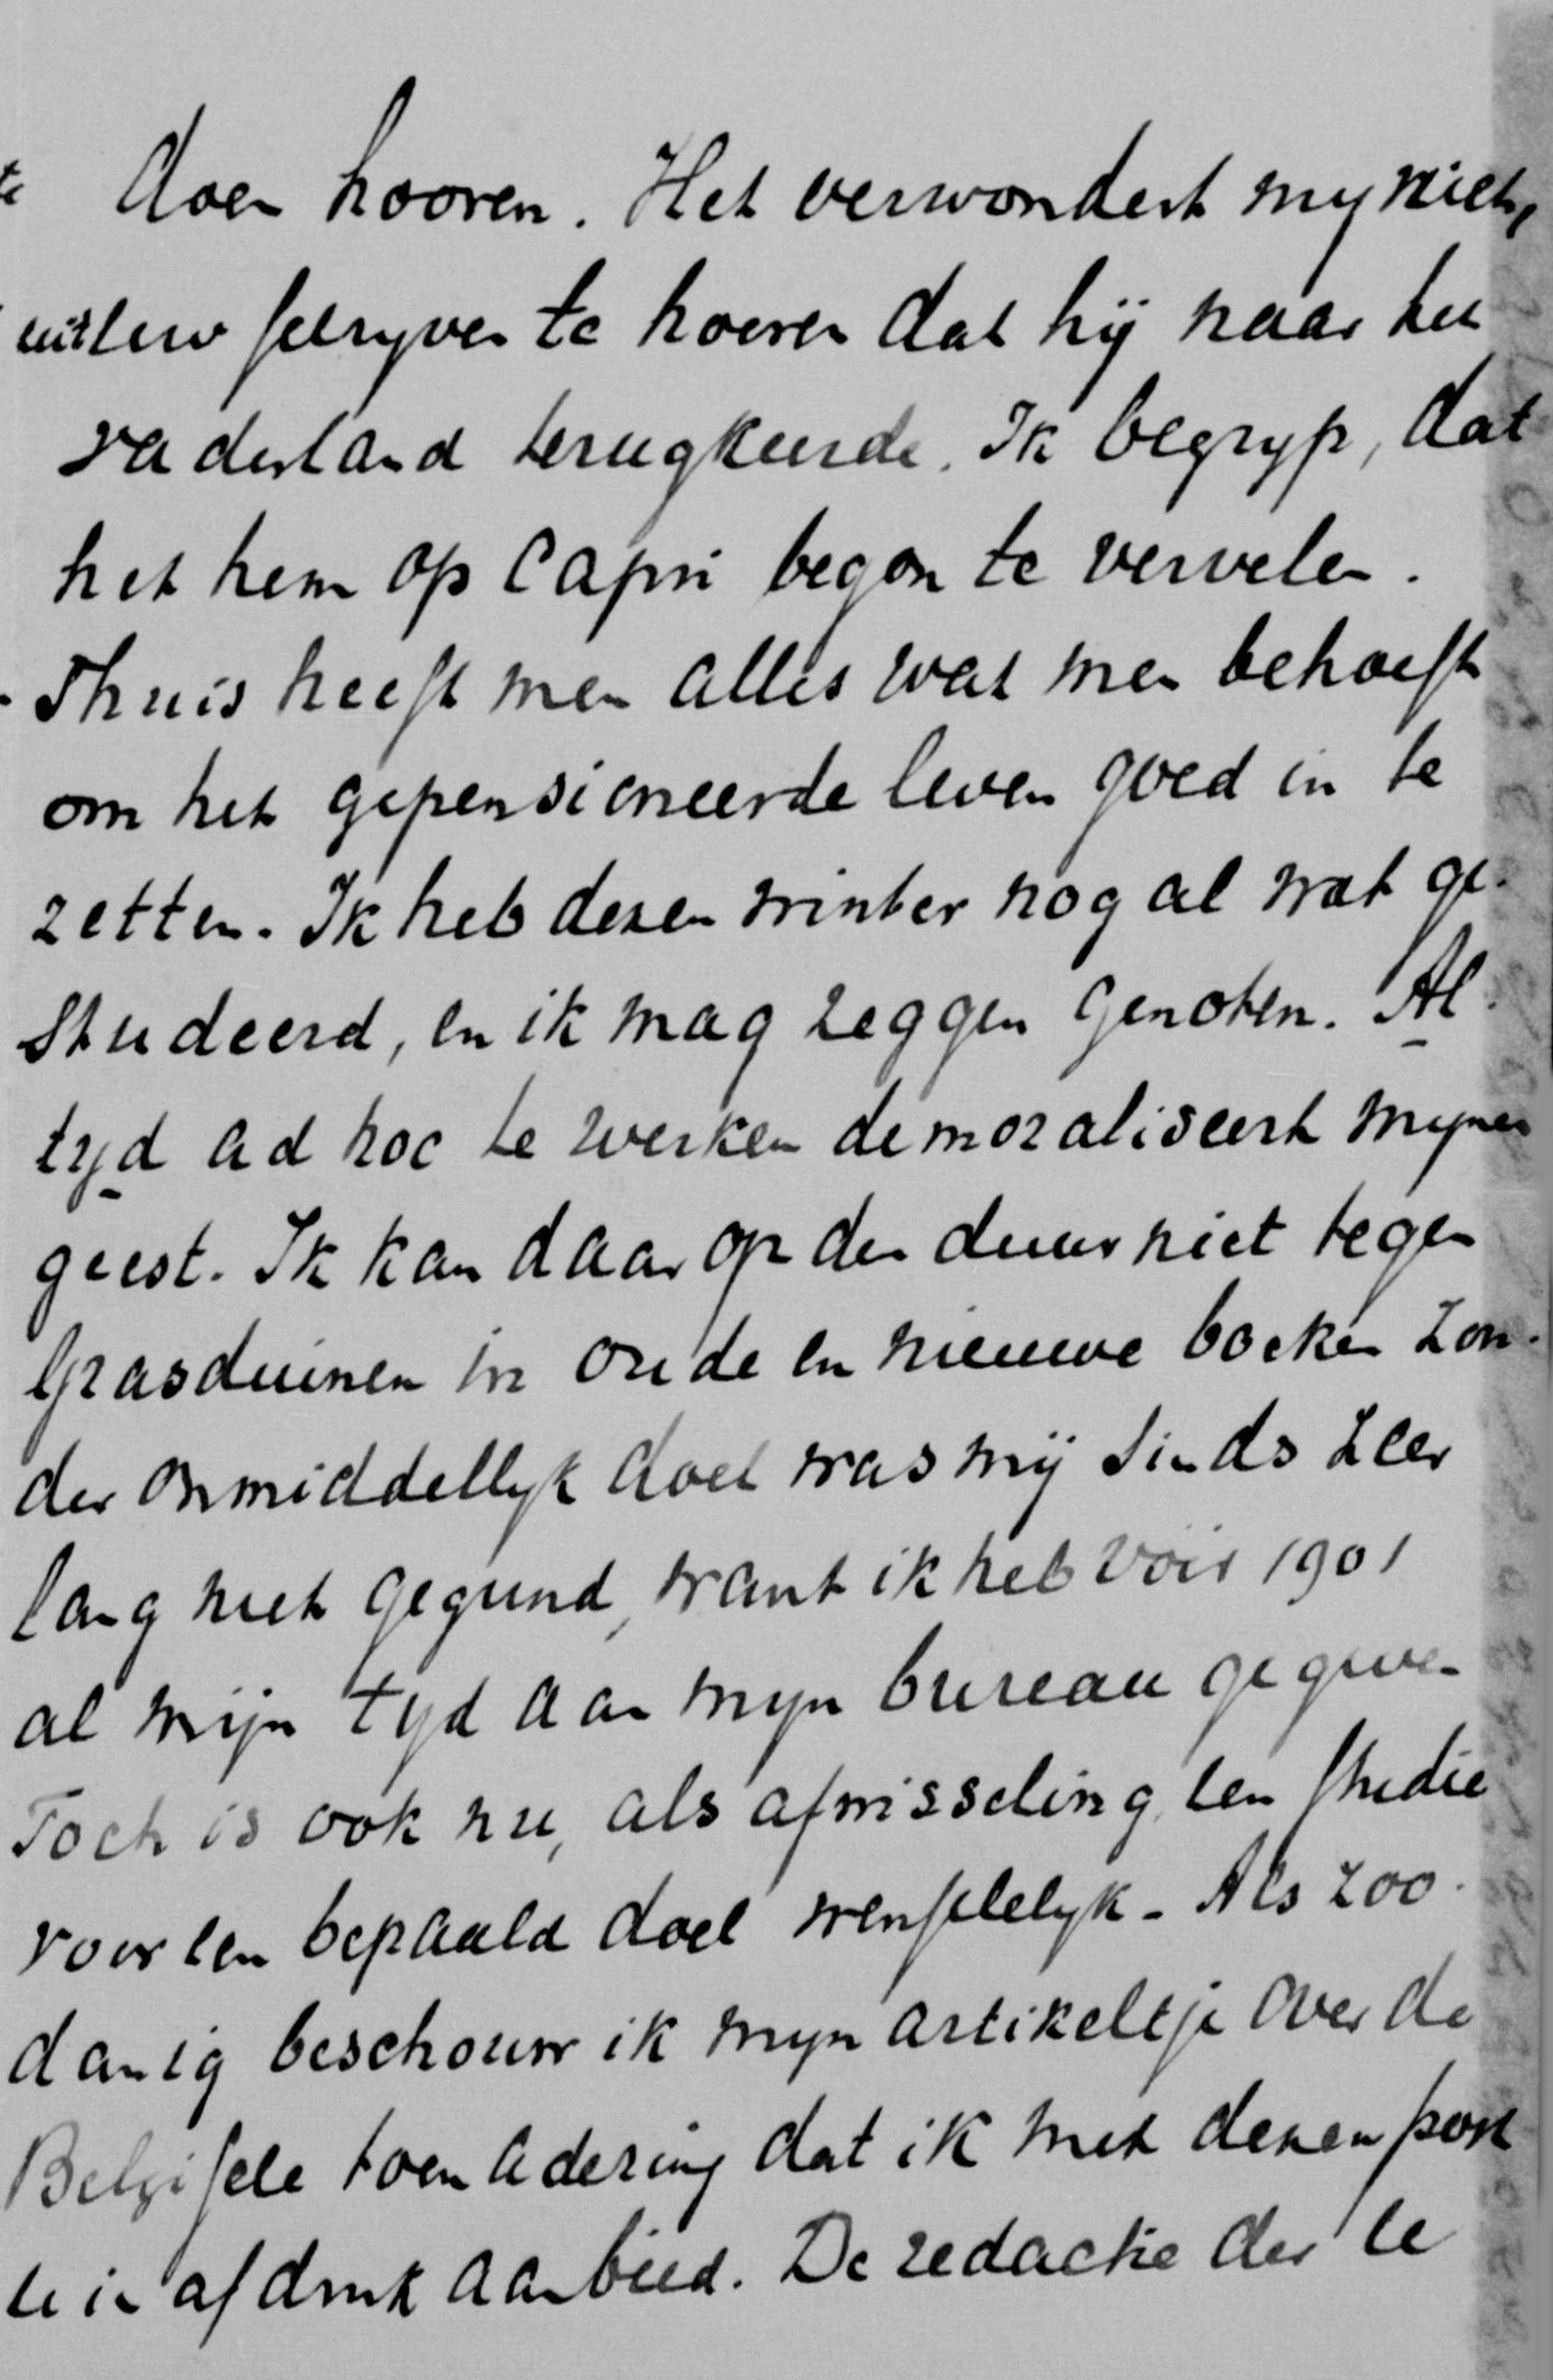 doen hooren. Het verwondert my niet,
uit uw schryven te hooren dat hij naar het
vaderland terugkeerde. Ik begryp, dat
het hem op Capri begon te vervelen.
Thuis heeft men alles wat men behoeft
om het gepensioneerde leven goed in te
zetten. Ik heb dezen winter nog al wat ge-
studeerd, en ik mag zeggen genoten. Al-
tyd ad hoc te werken demoraliseert mynen
geest. Ik kan daar op den duur niet tegen
Grasduinen in oude en nieuwe boeken zon-
der onmiddellyk doel was mij sinds zeer
lang niet gegund, want ik heb vóór 1901
al mijn tyd aan myn bureau gegeven
Toch is ook nu, als afwisseling, een studie
voor een bepaald doel wenschelyk. Als zoo-
danig beschouw ik myn artikeltje over de
Belgische toenadering dat ik met dezen post
U in afdruk aanbied. De redactie der